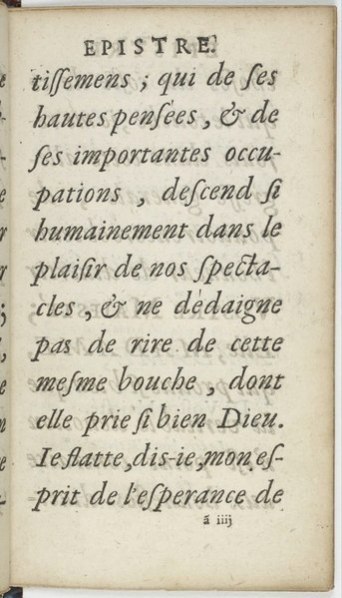 EPISTRE.
tiſſemens ; qui de ſes
hautes penſées, & de
ſes importantes occu-
pations , deſcend ſi
humainement dans le
plaiſir de nos ſpecta-
cles, & ne dédaigne
pas de rire de cette
meſme bouche, dont
elle prie ſi bien Dieu.
Ie flatte, dis-ie, mon eſ-
prit de l'eſperance de
ã iiij